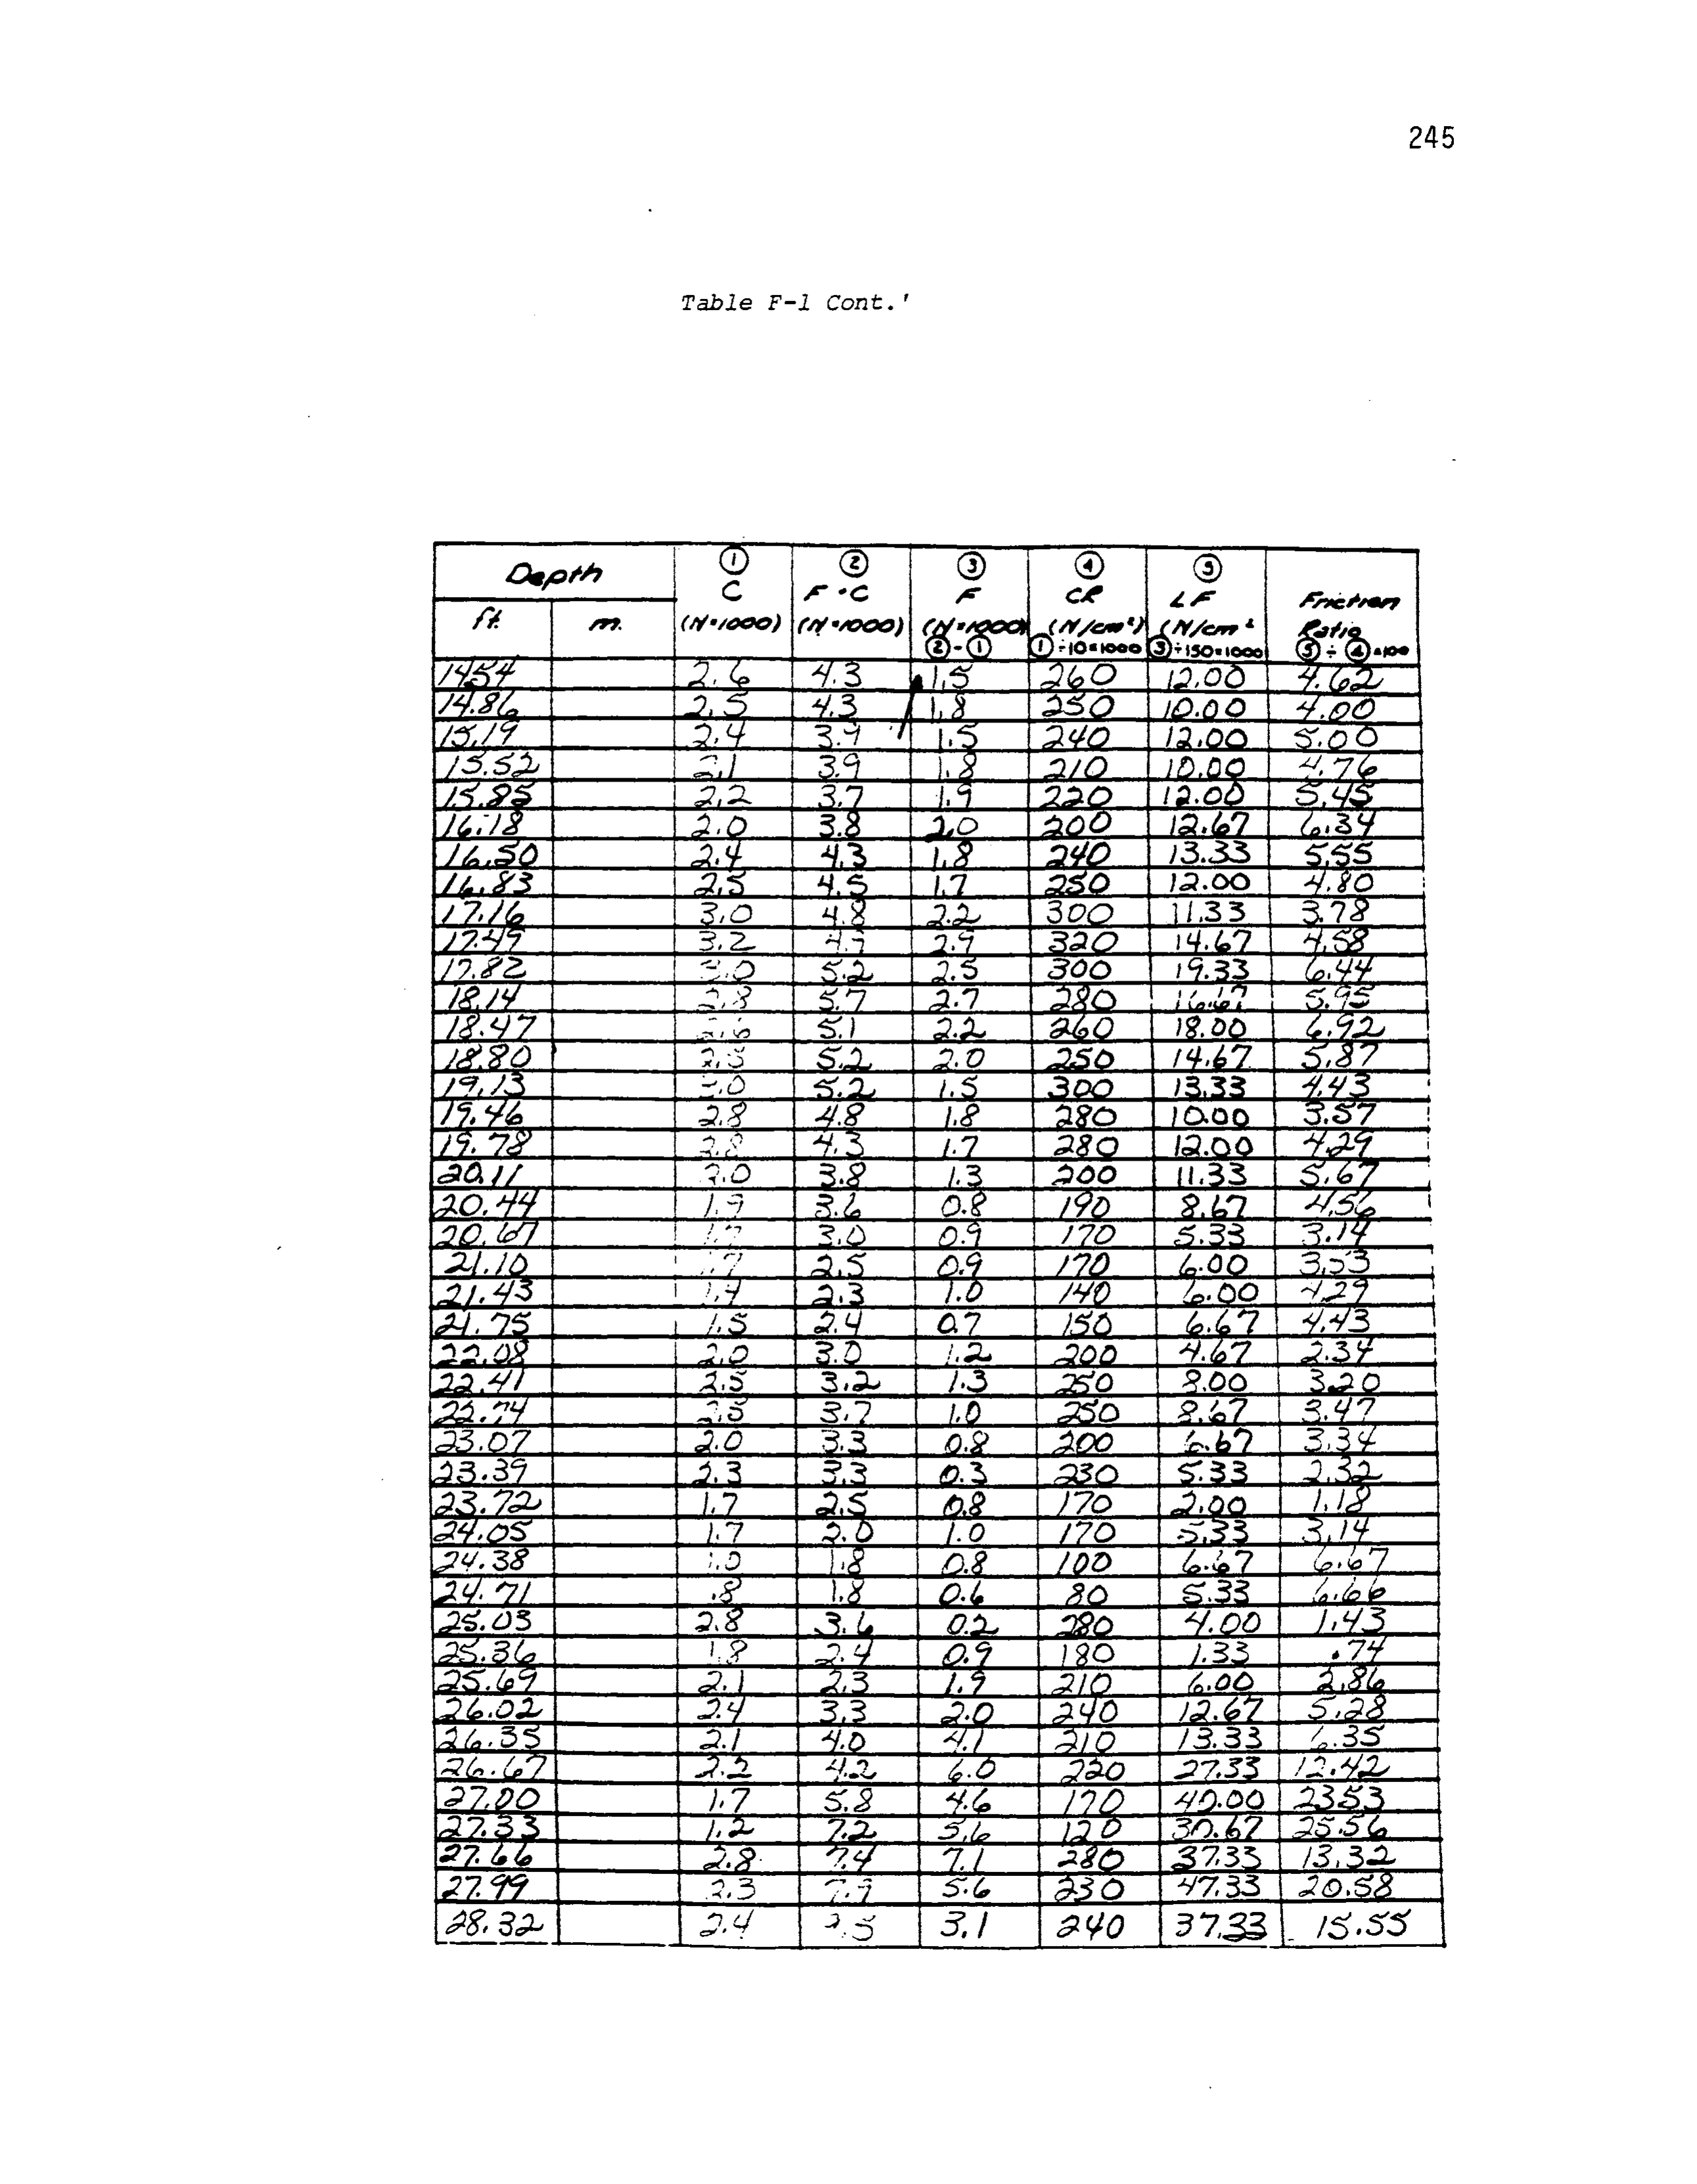 245
Table F-1 Cont.'
Depth ① ② ③ ④ ⑤
C F + C F CR LF Friction
ft. m. (N×1000) (N×1000) (N×1000) (N/cm²) (N/cm² Ratio
②-① ①÷10×1000 ③÷150×1000 ⑤÷④×100
14.54 2.6 4.3 1.5 260 12.00 4.62
14.86 2.5 4.3 1.8 250 10.00 4.00
15.19 2.4 3.9 1.5 240 12.00 5.00
15.52 2.1 3.9 1.8 210 10.00 4.76
15.85 2.2 3.7 1.9 220 12.00 5.45
16.18 2.0 3.8 2.0 200 12.67 6.34
16.50 2.4 4.3 1.8 240 13.33 5.55
16.83 2.5 4.5 1.7 250 12.00 4.80
17.16 3.0 4.8 2.2 300 11.33 3.78
17.49 3.2 4.9 2.9 320 14.67 4.58
17.82 3.0 5.2 2.5 300 19.33 6.44
18.14 2.8 5.7 2.7 280 16.67 5.95
18.47 2.6 5.1 2.2 260 18.00 6.92
18.80 2.5 5.2 2.0 250 14.67 5.87
19.13 3.0 5.2 1.5 300 13.33 4.43
19.46 2.8 4.8 1.8 280 10.00 3.57
19.78 2.8 4.3 1.7 280 12.00 4.29
20.11 2.0 3.8 1.3 200 11.33 5.67
20.44 1.9 3.6 0.8 190 8.67 4.56
20.67 1.7 3.0 0.9 170 5.33 3.14
21.10 1.7 2.5 0.9 170 6.00 3.53
21.43 1.4 2.3 1.0 140 6.00 4.29
21.75 1.5 2.4 0.7 150 6.67 4.43
22.08 2.0 3.0 1.2 200 4.67 2.34
22.41 2.5 3.2 1.3 250 8.00 3.20
22.74 2.5 3.7 1.0 250 8.67 3.47
23.07 2.0 3.3 0.8 200 6.67 3.34
23.39 2.3 3.3 0.3 230 5.33 2.32
23.72 1.7 2.5 0.8 170 2.00 1.18
24.05 1.7 2.0 1.0 170 5.33 3.14
24.38 1.0 1.8 0.8 100 6.67 6.67
24.71 .8 1.8 0.6 80 5.33 6.66
25.03 2.8 3.6 0.2 280 4.00 1.43
25.36 1.8 2.4 0.9 180 1.33 .74
25.69 2.1 2.3 1.9 210 6.00 2.86
26.02 2.4 3.3 2.0 240 12.67 5.28
26.35 2.1 4.0 4.1 210 13.33 6.35
26.67 2.2 4.2 6.0 220 27.33 12.42
27.00 1.7 5.8 4.6 170 40.00 23.53
27.33 1.2 7.2 5.6 120 30.67 25.56
27.66 2.8 7.4 7.1 280 37.33 13.32
27.99 2.3 7.9 5.6 230 47.33 20.58
28.32 2.4 3.1 240 37.33 15.55